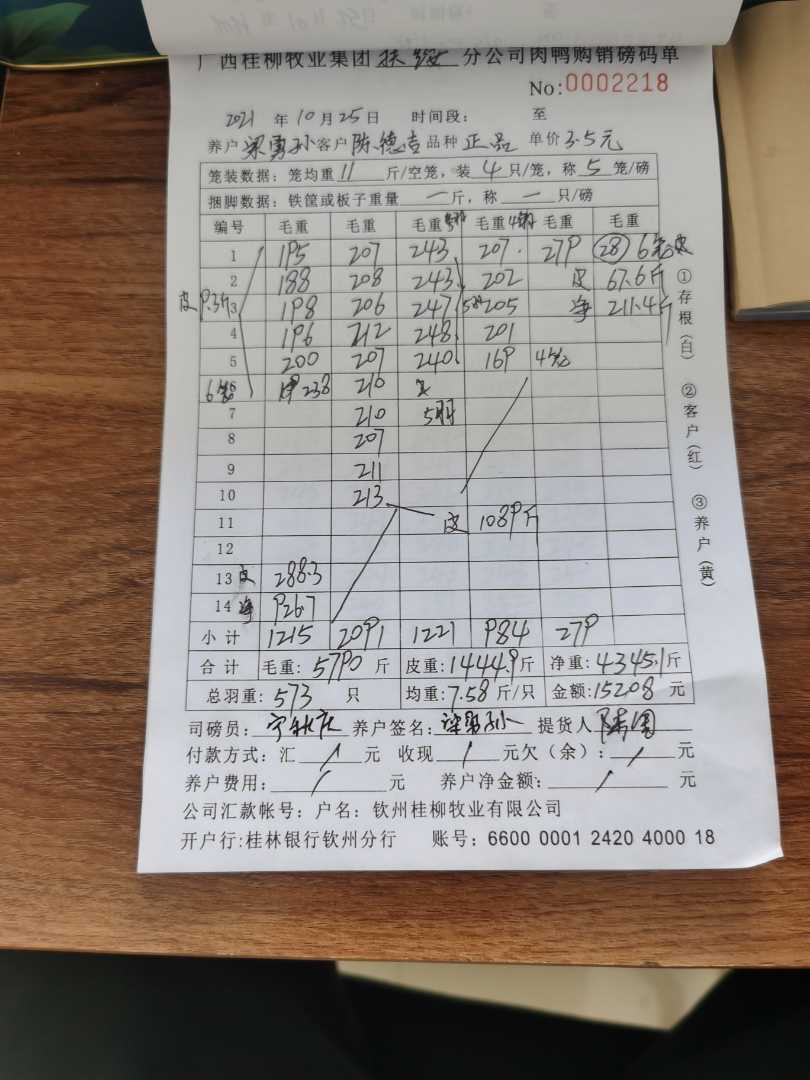 广西桂柳牧业集团扶绥分公司肉鸭购销磅码单
No:0002218
2021 年 10 月 25 日 时间段: 至
养户 梁勇孙 客户 陈德吉 品种 正品 单价 3.5元
笼装数据: 笼均重 11 斤/空笼, 装 4 只/笼, 称 5 笼/磅
捆脚数据: 铁筐或板子重量 一 斤, 称 一 只/磅
编号 毛重 毛重 毛重 毛重 毛重 毛重
1 195 207 243 207 279 28 6笼 皮
2 188 208 243 202 皮 67.6斤
皮9.3斤 3 198 206 247 205 净 211.4斤
4 196 212 248 201
5 200 207 240 169 4笼
6笼 6 238 210
7 210 5羽
8 207
9 211
10 213
11 皮 1089斤
12
13 皮 288.3
14 净 926.7
小计 1215 2091 1221 984 279
合计 毛重: 5790 斤 皮重: 1444.9 斤 净重: 4345.1 斤
总羽重: 573 只 均重: 7.58 斤/只 金额: 15208 元
司磅员: 养户签名: 梁勇孙 提货人
付款方式: 汇 / 元 收现 / 元欠(余): / 元
养户费用: / 元 养户净金额: / 元
公司汇款帐号: 户名: 钦州桂柳牧业有限公司
开户行:桂林银行钦州分行 账号: 6600 0001 2420 4000 18
①存根(白) ②客户(红) ③养户(黄)